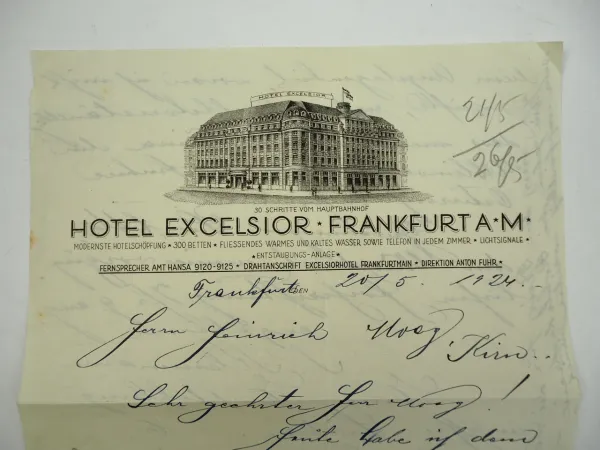 HOTEL EXCELSIOR
21/5
26/5
30 SCHRITTE VOM HAUPTBAHNHOF
HOTEL EXCELSIOR ★ FRANKFURT A★M★
MODERNSTE HOTELSCHÖPFUNG ★ 300 BETTEN ★ FLIESSENDES WARMES UND KALTES WASSER SOWIE TELEFON IN JEDEM ZIMMER ★ LICHTSIGNALE ★
★ENTSTAUBUNGS-ANLAGE★
FERNSPRECHER AMT HANSA 9120-9125 ★ DRAHTANSCHRIFT EXCELSIORHOTEL FRANKFURTMAIN ★ DIREKTION ANTON FUHR.★
Frankfurt DEN 20/5. 1924.
Herrn Heinrich Moog, Kirn.
Sehr geehrter Herr Moog!
Heute habe ich dem